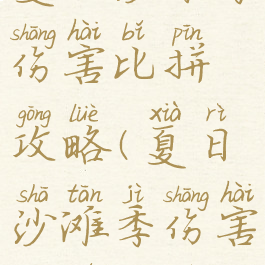 shāng hài bǐ pīn
伤害比拼
gōng lüè xià rì
攻略(夏日
shā tān jì shāng hài
沙滩季伤害